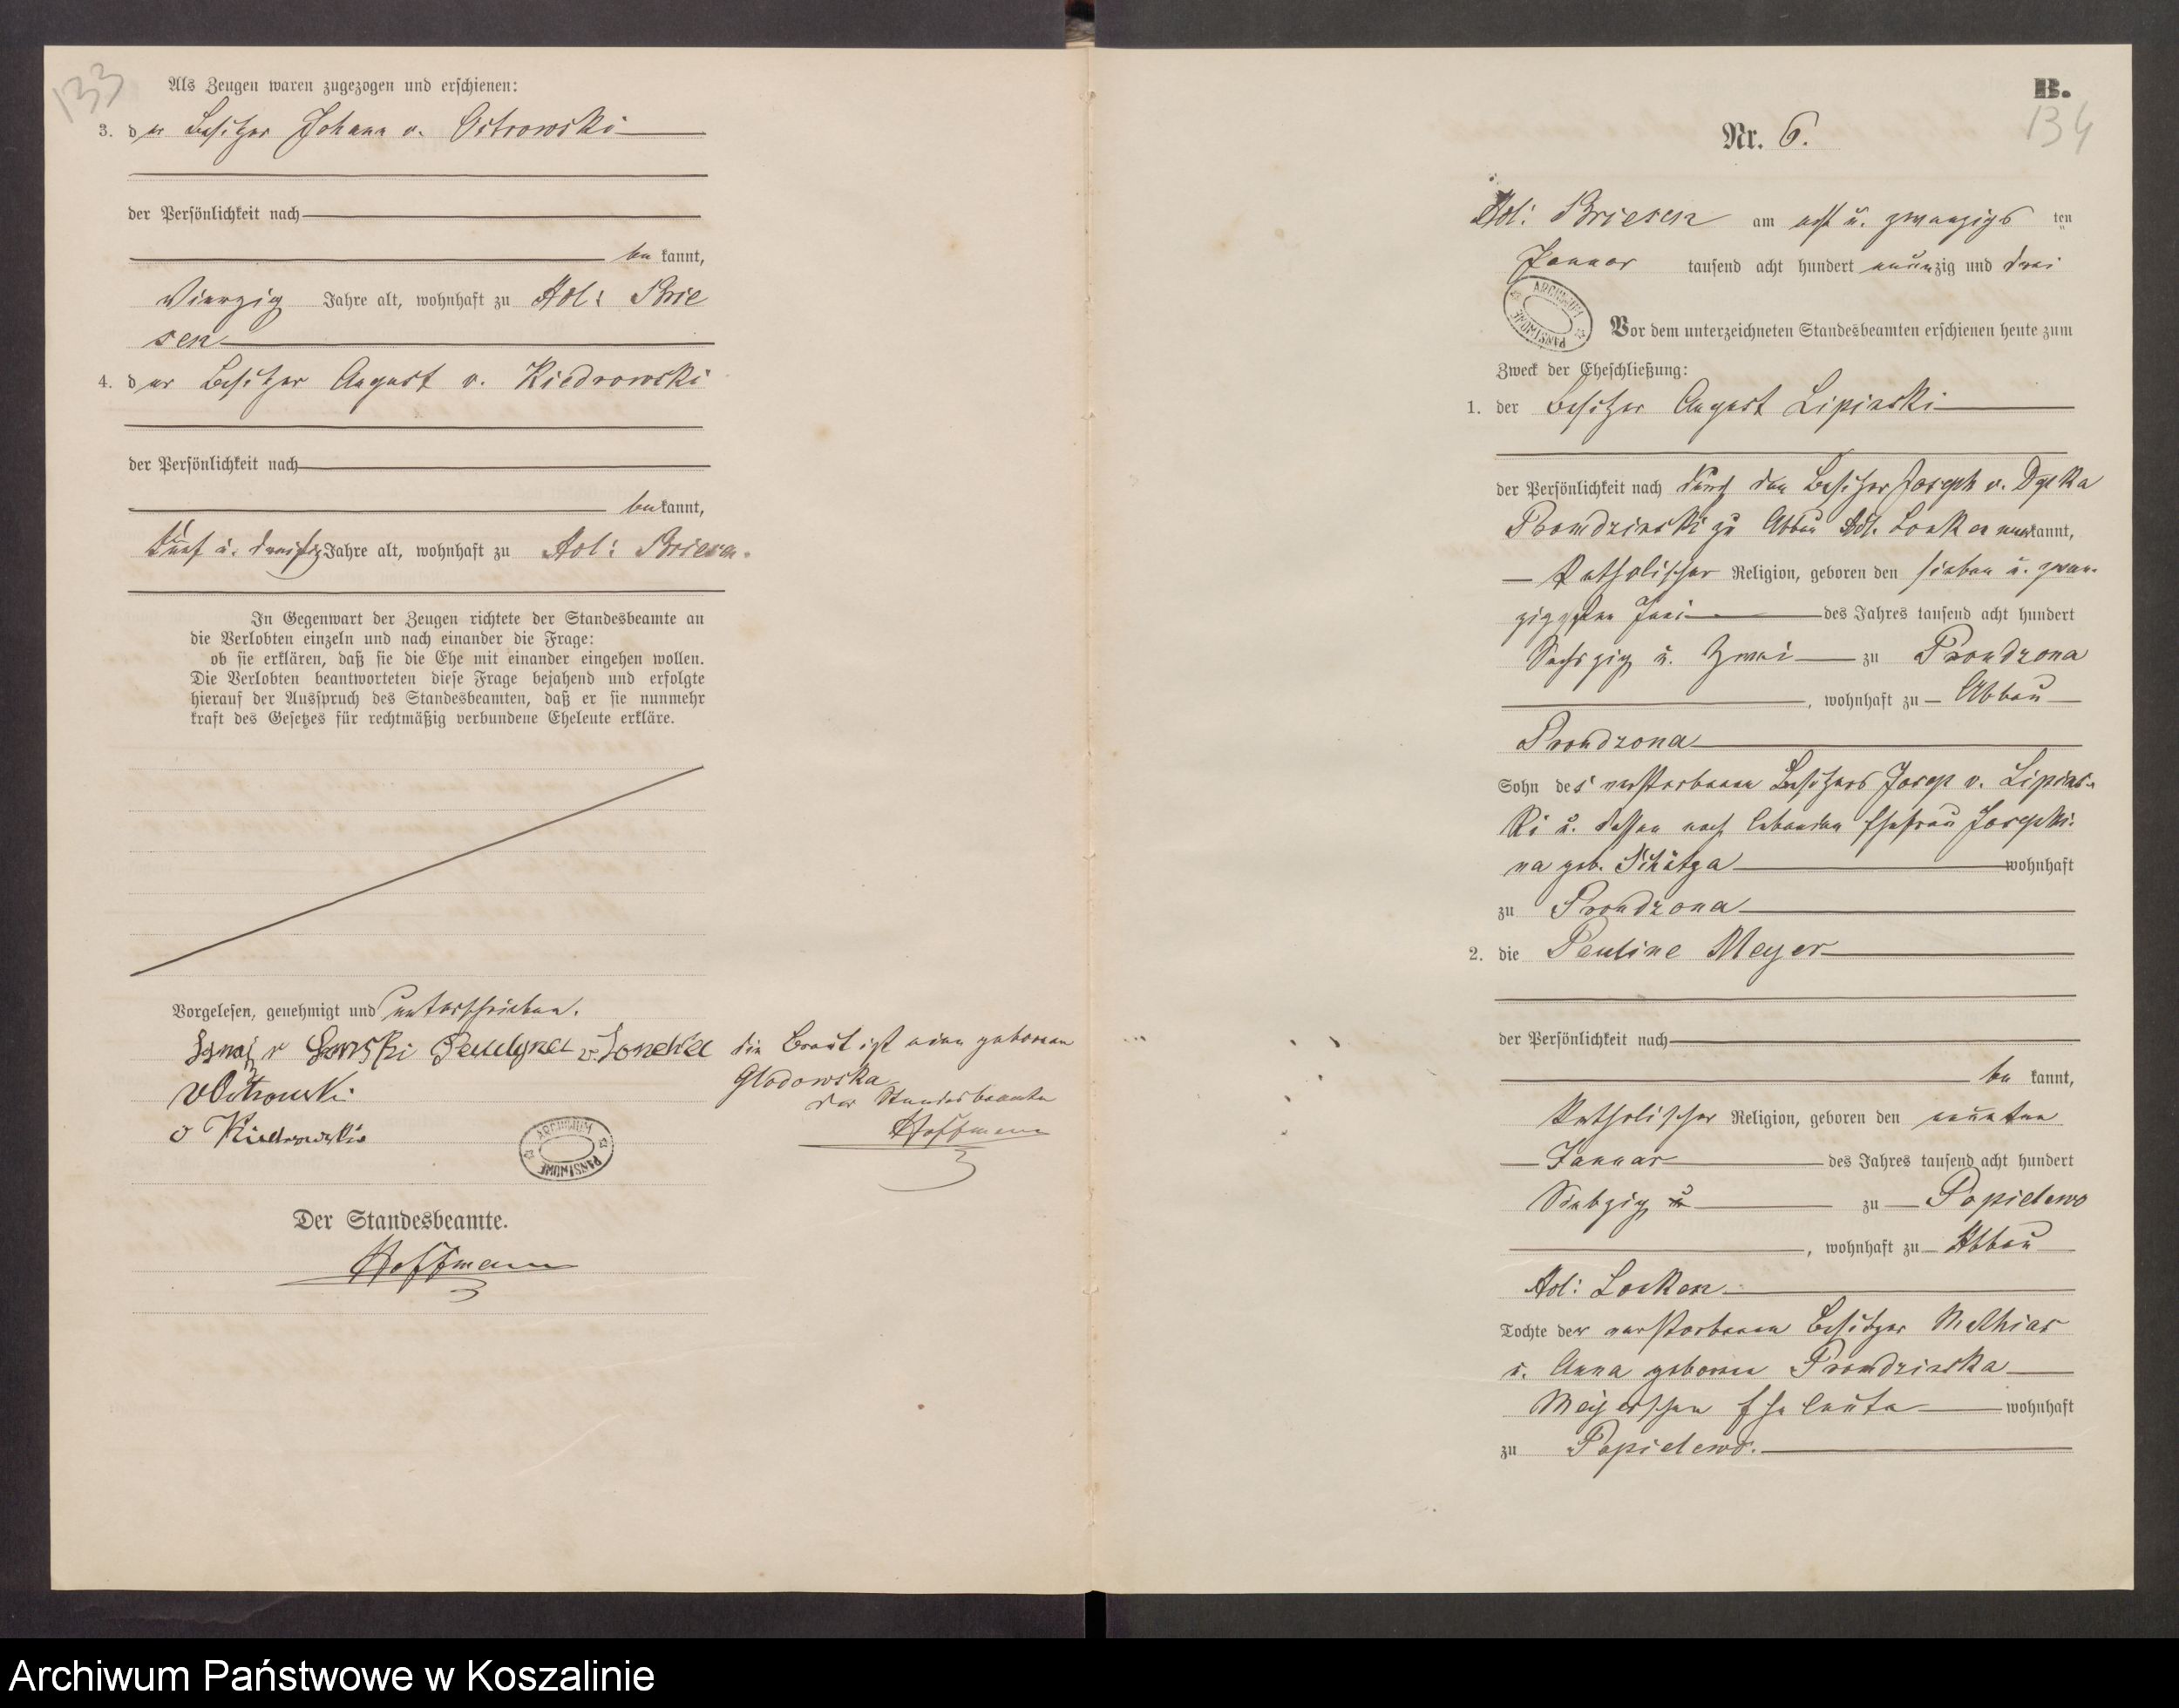 133
Als Zeugen waren zugezogen und erschienen:
3. der Besitzer Johann v. Ostrowski
der Persönlichkeit nach
bekannt,
Vierzig Jahre alt, wohnhaft zu Adl: Brie
sen
4. der Besitzer August v. Kiedrowski
der Persönlichkeit nach
bekannt,
fünf u. dreißig Jahre alt, wohnhaft zu Adl: Briesen.
In Gegenwart der Zeugen richtete der Standesbeamte an
die Verlobten einzeln und nach einander die Frage:
ob sie erklären, daß sie die Ehe mit einander eingehen wollen.
Die Verlobten beantworteten diese Frage bejahend und erfolgte
hierauf der Ausspruch des Standesbeamten, daß er sie nunmehr
kraft des Gesetzes für rechtmäßig verbundene Eheleute erkläre.
Vorgelesen, genehmigt und unterschrieben.
Ignaz v
v Ostrowski
v Kiedrowski
ARCHIWUM PAŃSTWOWE
Der Standesbeamte.
Hoffmann
die Braut ist eine geborene
Glodowska
Der Standesbeamte
Hoffmann
B.
134
Nr. 6.
Adl: Briesen am acht u. zwanzigs ten
Januar tausend acht hundert neunzig und drei
ARCHIWUM PAŃSTWOWE
Vor dem unterzeichneten Standesbeamten erschienen heute zum
Zweck der Eheschließung:
1. der Besitzer August Lipinski
der Persönlichkeit nach durch den Besitzer Joseph v.
Prondzinski zu Abbau Adl. kannt,
Katholischer Religion, geboren den sieben u. zwan-
zigsten Juni des Jahres tausend acht hundert
Sechszig u. Zwei zu Prondzona
, wohnhaft zu Abbau
Prondzona
Sohn des verstorbenen Besitzers Josep v. Lipins-
ki u. dessen noch lebenden Ehefrau Josephi-
na geb. wohnhaft
zu Prondzona
2. die Pauline Meyer
der Persönlichkeit nach
be kannt,
Katholischer Religion, geboren den neunten
Januar des Jahres tausend acht hundert
Siebzig u zu Popielewo
, wohnhaft zu Abbau
Adl: Locken
Tochter der verstorbenen Besitzer Mathias
u. Anna geborne Prondzinska
Meyerschen Eheleute wohnhaft
zu Popielewo.
Archiwum Państwowe w Koszalinie